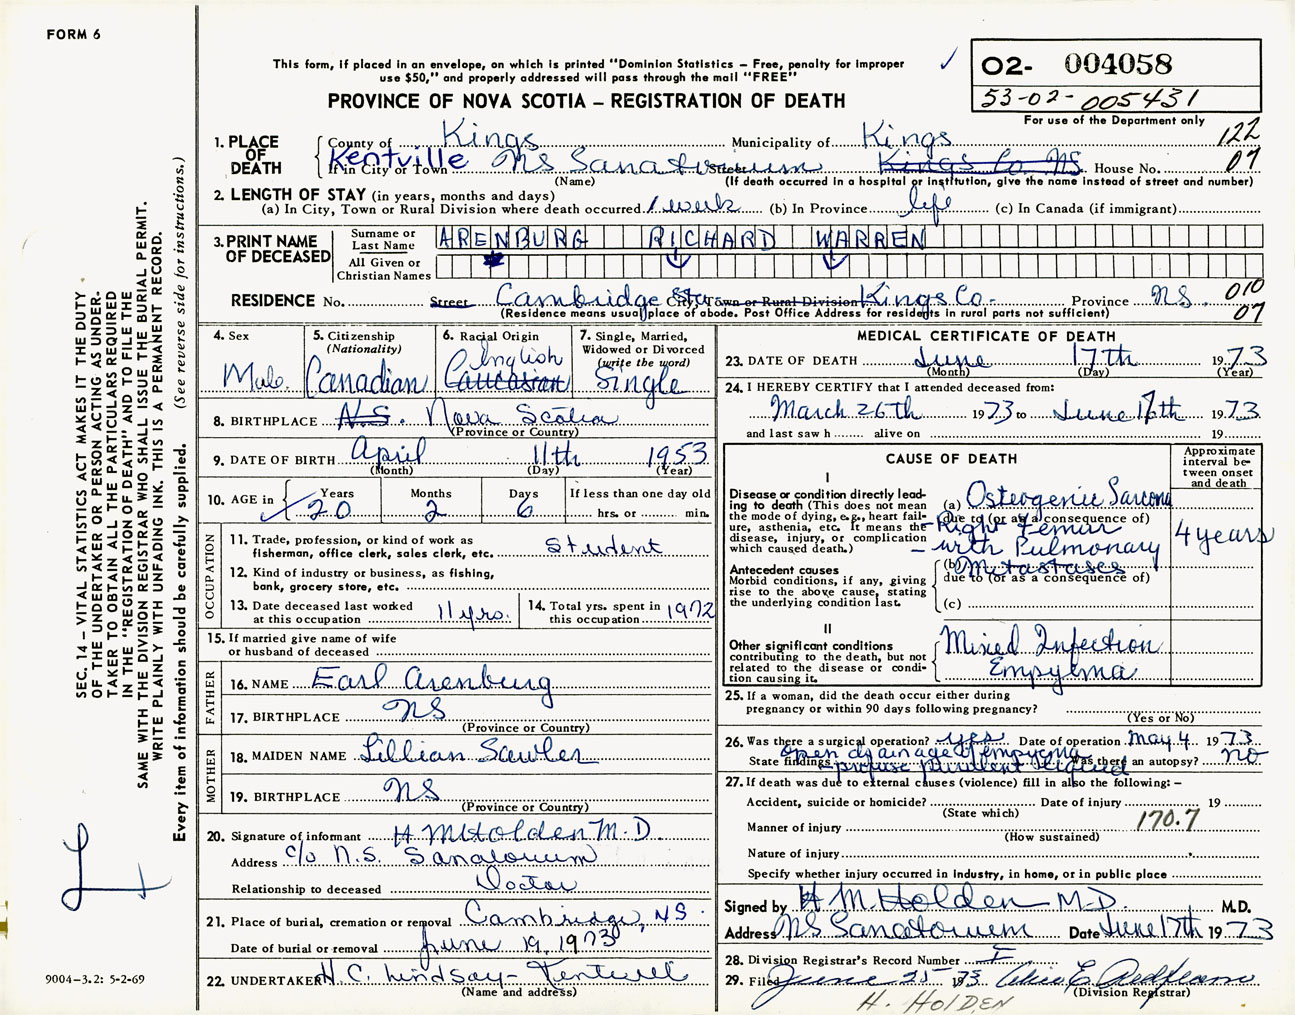 FORM 6
This form, if placed in an envelope, on which is printed "Dominion Statistics – Free, penalty for improper
use $50," and properly addressed will pass through the mail "FREE"
PROVINCE OF NOVA SCOTIA – REGISTRATION OF DEATH
✓ 02- 004058
53-02-005431
For use of the Department only
122
07
1. PLACE OF DEATH
County of Kings Municipality of Kings
If in City or Town Kentville NS Sanatorium Street Kings Co NS House No.
(Name) (If death occurred in a hospital or institution, give the name instead of street and number)
2. LENGTH OF STAY (in years, months and days)
(a) In City, Town or Rural Division where death occurred 1 week (b) In Province life (c) In Canada (if immigrant)
3. PRINT NAME OF DECEASED
Surname or Last Name ARENBURG RICHARD WARREN
All Given or Christian Names
RESIDENCE No. Street Cambridge Sta City, Town or Rural Division Kings Co- Province NS. 010
(Residence means usual place of abode. Post Office Address for residents in rural parts not sufficient) 07
4. Sex
Male
5. Citizenship
(Nationality)
Canadian
6. Racial Origin
English
Caucasian
7. Single, Married,
Widowed or Divorced
(write the word)
Single
8. BIRTHPLACE N.S. Nova Scotia
(Province or Country)
9. DATE OF BIRTH April 11th 1953
(Month) (Day) (Year)
10. AGE in Years Months Days If less than one day old
20 2 6 hrs. or min.
OCCUPATION
11. Trade, profession, or kind of work as
fisherman, office clerk, sales clerk, etc. Student
12. Kind of industry or business, as fishing,
bank, grocery store, etc.
13. Date deceased last worked
at this occupation 11 yrs.
14. Total yrs. spent in
this occupation 1972
15. If married give name of wife
or husband of deceased
FATHER
16. NAME Earl Arenburg
17. BIRTHPLACE NS
(Province or Country)
MOTHER
18. MAIDEN NAME Lillian Sawler
19. BIRTHPLACE NS
(Province or Country)
20. Signature of informant H M Holden M.D
Address c/o N.S. Sanatorium
Relationship to deceased Doctor
21. Place of burial, cremation or removal Cambridge, NS.
Date of burial or removal June 19, 1973
22. UNDERTAKER H.C. Lindsay – Kentville
(Name and address)
MEDICAL CERTIFICATE OF DEATH
23. DATE OF DEATH June 17th 1973
(Month) (Day) (Year)
24. I HEREBY CERTIFY that I attended deceased from:
March 26th 1973 to June 17th 1973
and last saw h alive on 19
CAUSE OF DEATH
Approximate
interval be-
tween onset
and death
I
Disease or condition directly lead-
ing to death (This does not mean
the mode of dying, e.g., heart fail-
ure, asthenia, etc. It means the
disease, injury, or complication
which caused death.)
(a) Osteogenic Sarcoma
due to (or as a consequence of)
- Right Femur
- with Pulmonary
4 years
Antecedent causes
Morbid conditions, if any, giving
rise to the above cause, stating
the underlying condition last.
(b) Metastases
due to (or as a consequence of)
(c)
II
Other significant conditions
contributing to the death, but not
related to the disease or condi-
tion causing it.
Mixed Infection
Empyema
25. If a woman, did the death occur either during
pregnancy or within 90 days following pregnancy?
(Yes or No)
26. Was there a surgical operation? yes Date of operation May 4 1973
open drainage of empyema
State findings – profuse purulent liquid Was there an autopsy? no
27. If death was due to external causes (violence) fill in also the following: –
Accident, suicide or homicide? Date of injury 19
(State which)
Manner of injury 170.7
(How sustained)
Nature of injury
Specify whether injury occurred in Industry, in home, or in public place
Signed by H M. Holden M.D. M.D.
Address NS Sanatorium Date June 17th 1973
28. Division Registrar's Record Number
29. Filed June 25 1973 E. Redfearn
(Division Registrar)
H. HOLDEN
SEC. 14 – VITAL STATISTICS ACT MAKES IT THE DUTY
OF THE UNDERTAKER OR PERSON ACTING AS UNDER-
TAKER TO OBTAIN ALL THE PARTICULARS REQUIRED
IN THE "REGISTRATION OF DEATH" AND TO FILE THE
SAME WITH THE DIVISION REGISTRAR WHO SHALL ISSUE THE BURIAL PERMIT.
WRITE PLAINLY WITH UNFADING INK. THIS IS A PERMANENT RECORD.
Every item of information should be carefully supplied. (See reverse side for instructions.)
9004-3.2: 5-2-69